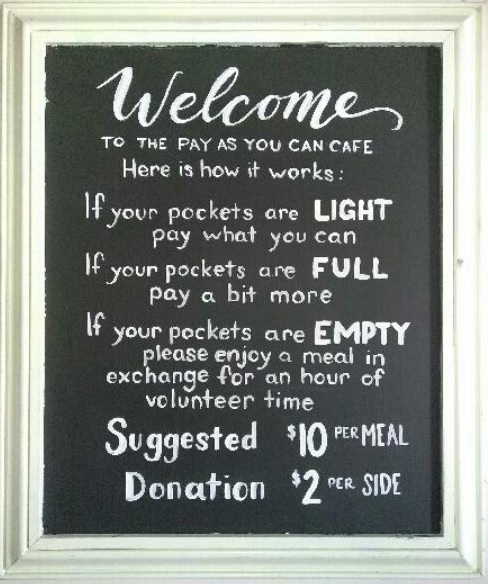 Welcome
TO THE PAY AS YOU CAN CAFE
Here is how it works:
If your pockets are LIGHT
pay what you can
If your pockets are FULL
pay a bit more
If your pockets are EMPTY
please enjoy a meal in
exchange for an hour of
volunteer time
Suggested $10 PER MEAL
Donation $2 PER SIDE